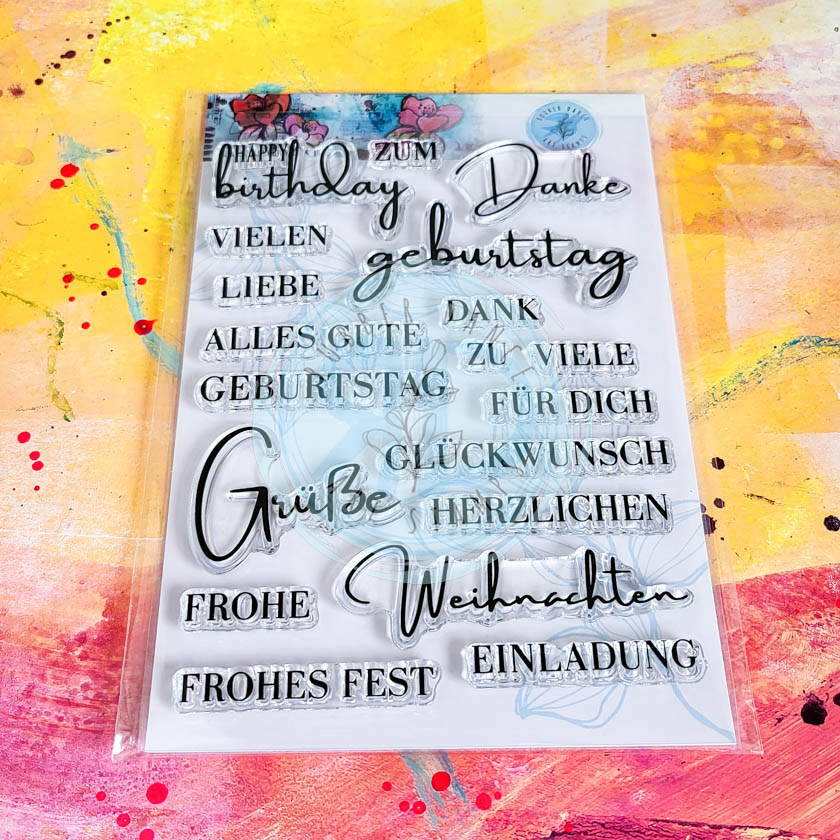 HAPPY
birthday
ZUM
Danke
VIELEN
geburtstag
LIEBE
DANK
ALLES GUTE
ZU VIELE
GEBURTSTAG
FÜR DICH
GLÜCKWUNSCH
Grüße
HERZLICHEN
Weihnachten
FROHE
EINLADUNG
FROHES FEST